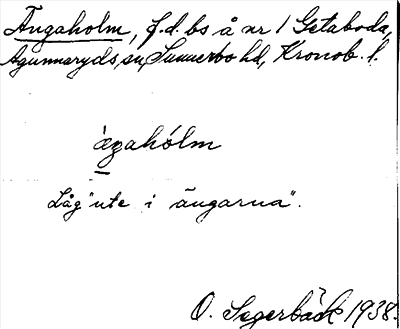 Ängaholm, f.d. bs å nr 1 Getaboda,
Agunnaryds sn, Sunnerbo hd, Kronob. l.
ạ̀ŋahólm
Låg "ute i ängarna".
O. Segerbäck 1938.